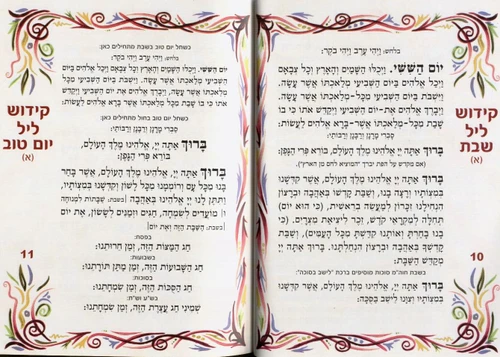 קידוש
ליל
שבת
(א)
בלחש: וַיְהִי עֶרֶב וַיְהִי בֹקֶר:
יוֹם הַשִּׁשִּׁי. וַיְכֻלּוּ הַשָּׁמַיִם וְהָאָרֶץ וְכָל צְבָאָם
וַיְכַל אֱלֹהִים בַּיּוֹם הַשְּׁבִיעִי מְלַאכְתּוֹ אֲשֶׁר עָשָׂה.
וַיִּשְׁבֹּת בַּיּוֹם הַשְּׁבִיעִי מִכָּל-מְלַאכְתּוֹ אֲשֶׁר עָשָׂה.
וַיְבָרֶךְ אֱלֹהִים אֶת-יוֹם הַשְּׁבִיעִי וַיְקַדֵּשׁ אֹתוֹ כִּי בוֹ
שָׁבַת מִכָּל-מְלַאכְתּוֹ אֲשֶׁר-בָּרָא אֱלֹהִים לַעֲשׂוֹת:
סַבְרִי מָרָנָן וְרַבָּנָן וְרַבּוֹתַי:
בָּרוּךְ אַתָּה יְיָ, אֱלֹהֵינוּ מֶלֶךְ הָעוֹלָם,
בּוֹרֵא פְּרִי הַגָּפֶן:
(אם מקדש על הפת יברך "המוציא לחם מן הארץ")
בָּרוּךְ אַתָּה יְיָ, אֱלֹהֵינוּ מֶלֶךְ הָעוֹלָם, אֲשֶׁר קִדְּשָׁנוּ
בְּמִצְוֹתָיו וְרָצָה בָנוּ, וְשַׁבַּת קָדְשׁוֹ בְּאַהֲבָה וּבְרָצוֹן
הִנְחִילָנוּ זִכָּרוֹן לְמַעֲשֵׂה בְרֵאשִׁית, (כִּי הוּא יוֹם)
תְּחִלָּה לְמִקְרָאֵי קֹדֶשׁ, זֵכֶר לִיצִיאַת מִצְרָיִם. (כִּי
בָנוּ בָחַרְתָּ וְאוֹתָנוּ קִדַּשְׁתָּ מִכָּל הָעַמִּים), וְשַׁבַּת
קָדְשְׁךָ בְּאַהֲבָה וּבְרָצוֹן הִנְחַלְתָּנוּ. בָּרוּךְ אַתָּה יְיָ,
מְקַדֵּשׁ הַשַּׁבָּת:
בשבת חוה"מ סוכות מוסיפים ברכת "לישב בסוכה":
בָּרוּךְ אַתָּה יְיָ, אֱלֹהֵינוּ מֶלֶךְ הָעוֹלָם, אֲשֶׁר קִדְּשָׁנוּ
בְּמִצְוֹתָיו וְצִוָּנוּ לֵישֵׁב בַּסֻּכָּה:
10
כשחל יום טוב בשבת מתחילים כאן:
בלחש: וַיְהִי עֶרֶב וַיְהִי בֹקֶר:
יוֹם הַשִּׁשִּׁי. וַיְכֻלּוּ הַשָּׁמַיִם וְהָאָרֶץ וְכָל צְבָאָם וַיְכַל אֱלֹהִים בַּיּוֹם
הַשְּׁבִיעִי מְלַאכְתּוֹ אֲשֶׁר עָשָׂה. וַיִּשְׁבֹּת בַּיּוֹם הַשְּׁבִיעִי מִכָּל מְלַאכְתּוֹ
אֲשֶׁר עָשָׂה. וַיְבָרֶךְ אֱלֹהִים אֶת יוֹם הַשְּׁבִיעִי וַיְקַדֵּשׁ
אֹתוֹ כִּי בוֹ שָׁבַת מִכָּל מְלַאכְתּוֹ אֲשֶׁר בָּרָא אֱלֹהִים לַעֲשׂוֹת:
כשחל יום טוב בחול מתחילים כאן:
סַבְרִי מָרָנָן וְרַבָּנָן וְרַבּוֹתַי:
בָּרוּךְ אַתָּה יְיָ, אֱלֹהֵינוּ מֶלֶךְ הָעוֹלָם,
בּוֹרֵא פְּרִי הַגָּפֶן:
בָּרוּךְ אַתָּה יְיָ, אֱלֹהֵינוּ מֶלֶךְ הָעוֹלָם, אֲשֶׁר בָּחַר
בָּנוּ מִכָּל עַם וְרוֹמְמָנוּ מִכָּל לָשׁוֹן וְקִדְּשָׁנוּ בְּמִצְוֹתָיו,
וַתִּתֶּן לָנוּ יְיָ אֱלֹהֵינוּ בְּאַהֲבָה [בשבת: שַׁבָּתוֹת לִמְנוּחָה
וּ] מוֹעֲדִים לְשִׂמְחָה, חַגִּים וּזְמַנִּים לְשָׂשׂוֹן, אֶת יוֹם
[בשבת: הַשַּׁבָּת הַזֶּה וְאֶת יוֹם]
בפסח:
חַג הַמַּצּוֹת הַזֶּה, זְמַן חֵרוּתֵנוּ:
בשבועות:
חַג הַשָּׁבוּעוֹת הַזֶּה, זְמַן מַתַּן תּוֹרָתֵנוּ:
בסוכות:
חַג הַסֻּכּוֹת הַזֶּה, זְמַן שִׂמְחָתֵנוּ:
בש"ע וש"ת:
שְׁמִינִי חַג עֲצֶרֶת הַזֶּה, זְמַן שִׂמְחָתֵנוּ:
קידוש
ליל
יום טוב
(א)
11